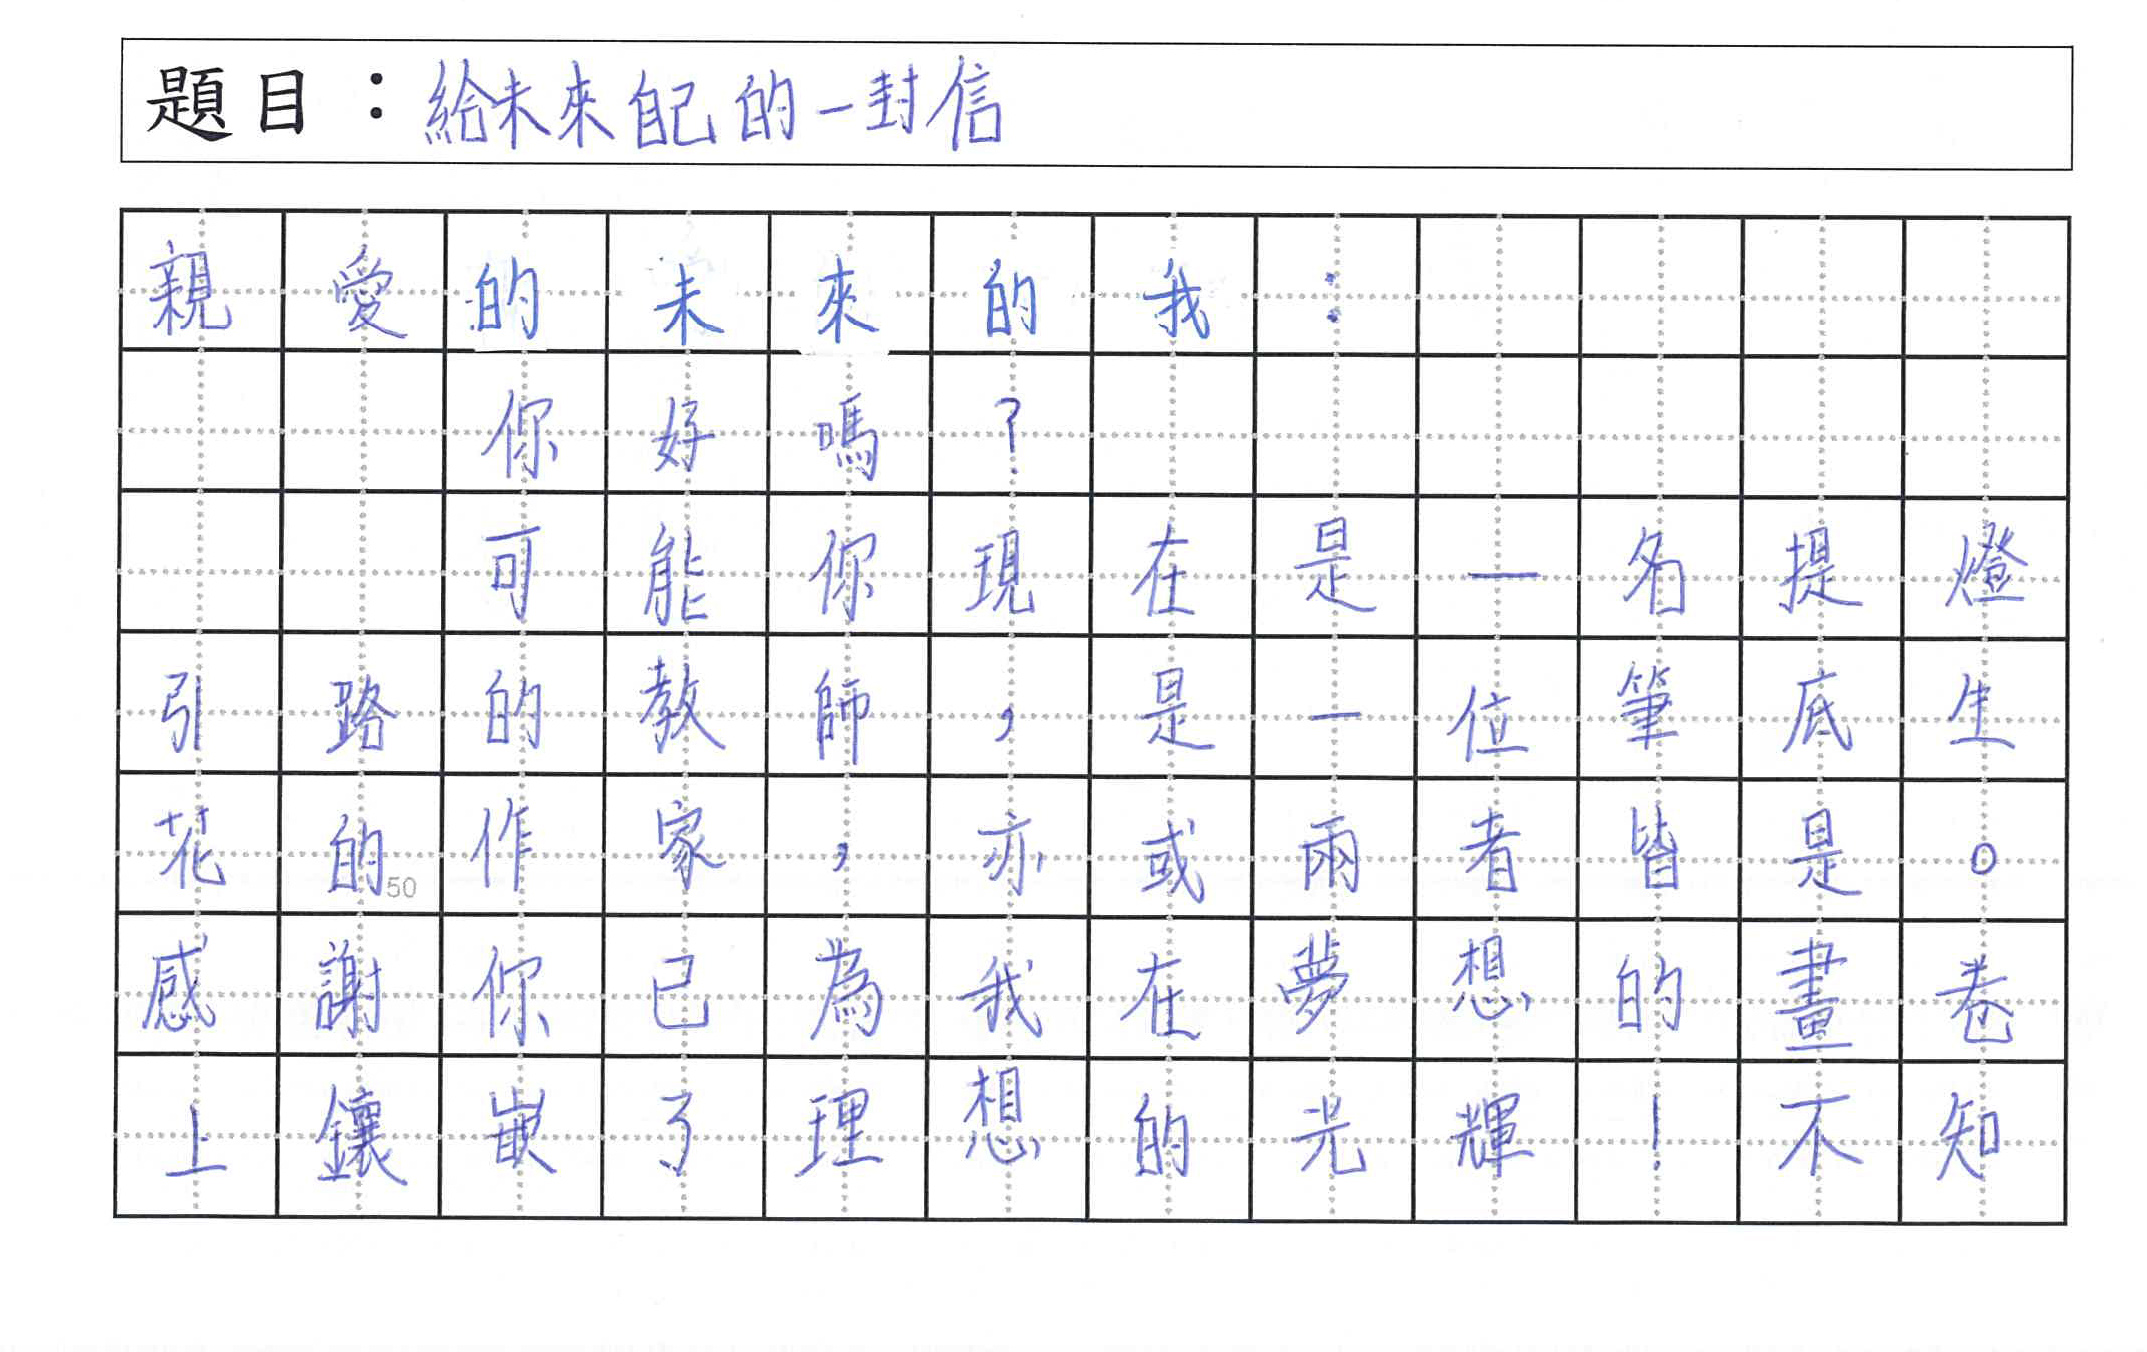 題目：給未來自己的一封信
親愛的未來的我：
你好嗎？
可能你現在是一名提燈
引路的教師，是一位筆底生
花的作家，亦或兩者皆是。
50
感謝你已為我在夢想的畫卷
上鑲嵌了理想的光輝！不知